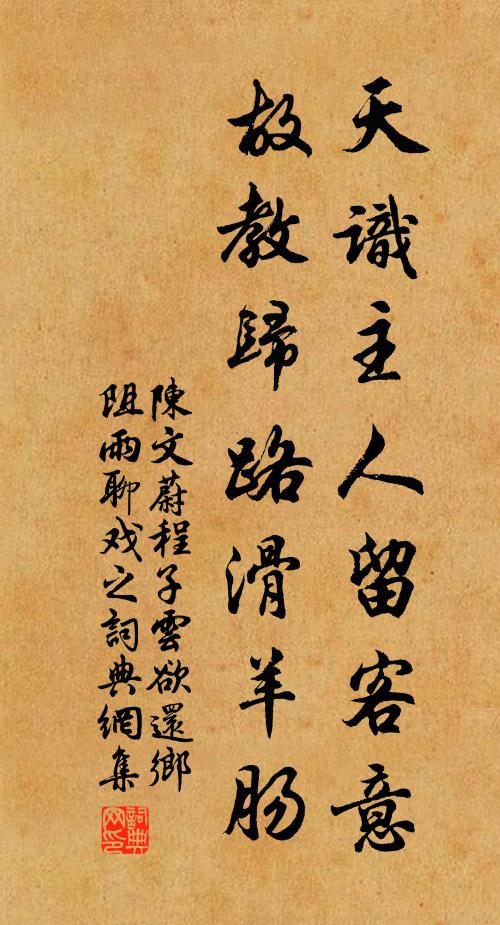 天識主人留客意
故教歸路滑羊腸
陳文蔚程子雲欲還鄉
阻雨聊戏之詞典網集
詞典
网印